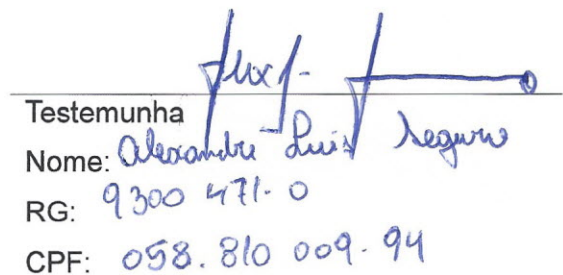 Testemunha
Nome: Alexandre Luis Seguro
RG: 9300 471-0
CPF: 058.810 009-94